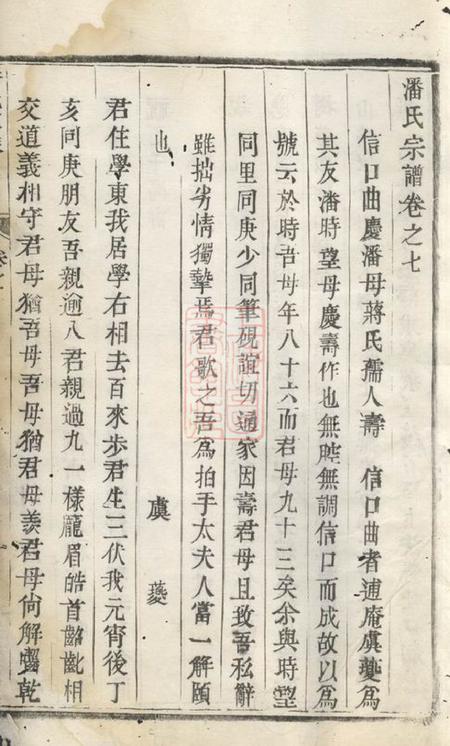 潘氏宗譜卷之七
信口曲慶潘母蔣氏孺人壽　信口曲者逋庵虞夔為
其友潘時望母慶壽作也無腔無調信口而成故以為
號云於時吾母年八十六而君母九十三矣余與時望
同里同庚少同筆硯誼切通家因壽君母且致吾私辭
雖拙劣情獨摯焉君歌之吾為拍手太夫人當一解頤
也
虞　夔
君住學東我居學右相去百來步君生三伏我元宵後丁
亥同庚朋友吾親逾八君親過九一樣龐眉皓首齠齔相
交道義相守君母猶吾母吾母猶君母羨君母尚解齧乾